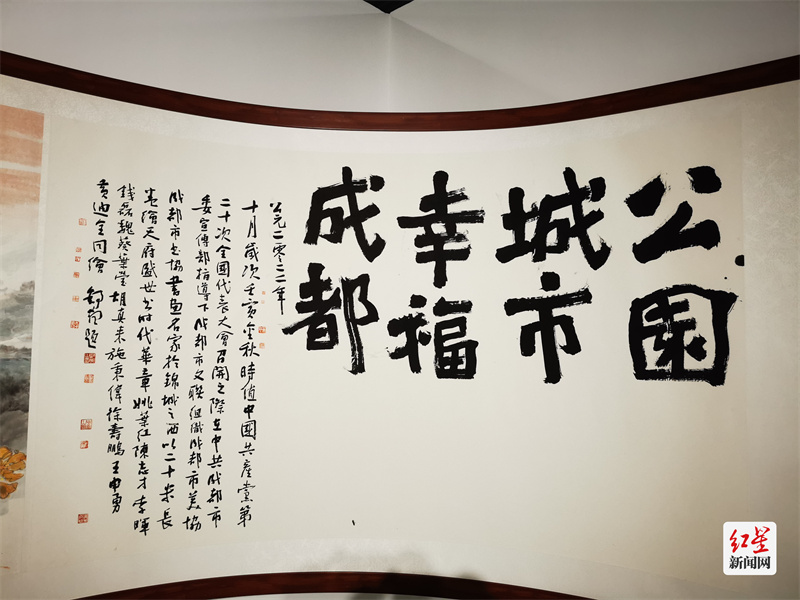 公園
城市
幸福
成都
公元二零二二年
十月歲次壬寅金秋時值中國共產黨第
二十次全國代表大會召開之際在中共成都市
委宣傳部指導下成都市文聯組織成都市美協
成都市书協書畫名家於錦城之西以二十米長
卷繪天府盛世书時代華章姚葉紅陳志才李暉
錢磊魏葵葉瑩胡真来施秉偉徐壽鵬王申勇
黄迪全同繪 舒炯題
红星
新闻网